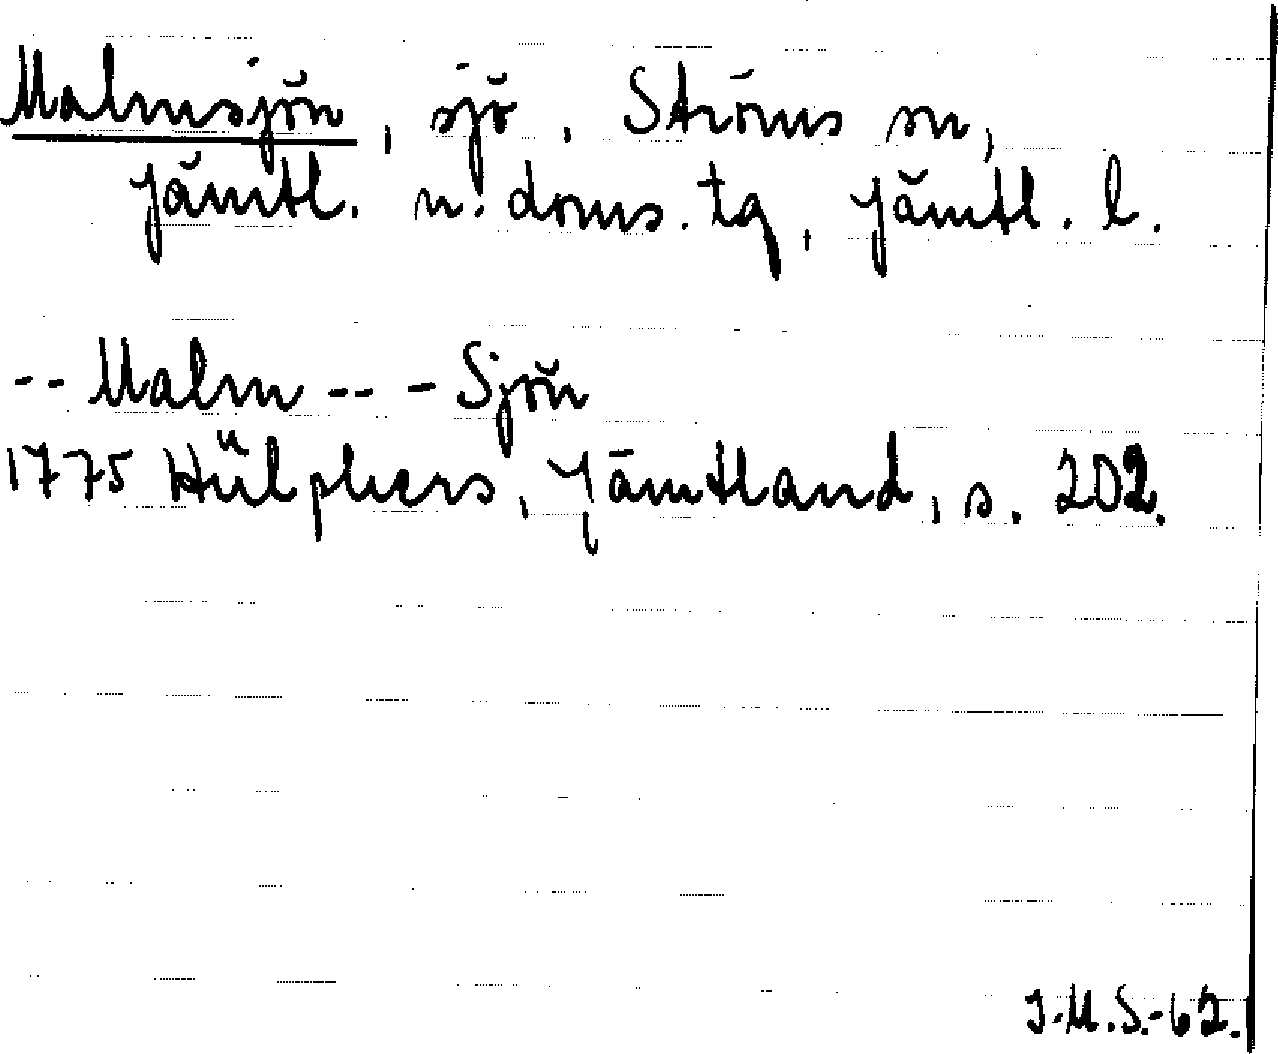 Malmsjön, sjö, Ströms sn,
Jämtl. n. doms. tg, Jämtl. l.
-- Malm -- - Sjön
1775 Hülphers, Jämtland, s. 202.
I.M.S.-62.